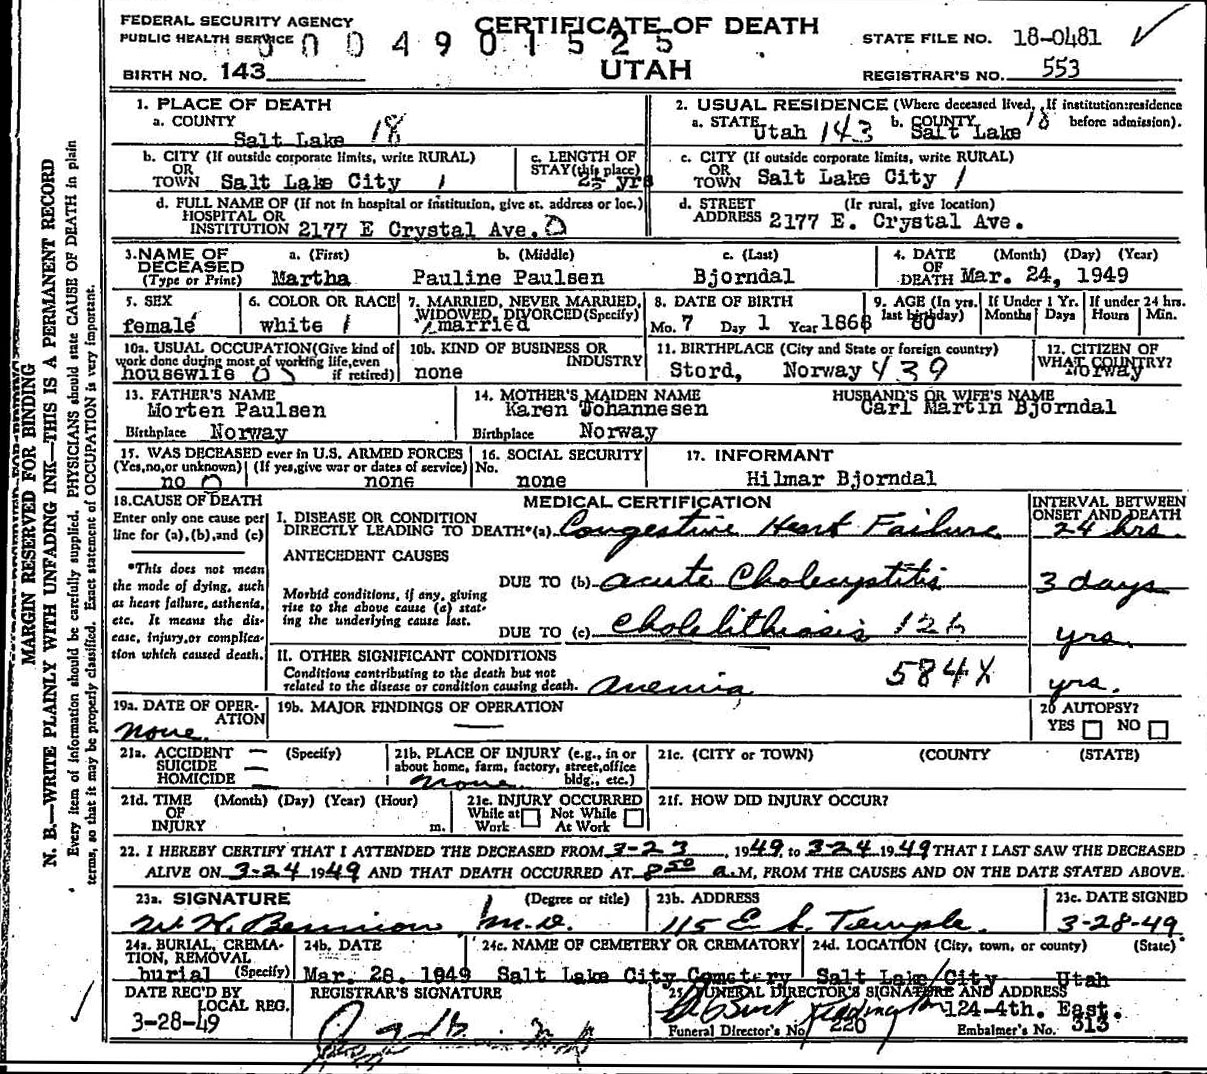 FEDERAL SECURITY AGENCY
PUBLIC HEALTH SERVICE
0004901525
CERTIFICATE OF DEATH
UTAH
STATE FILE NO. 18-0481
BIRTH NO. 143
REGISTRAR'S NO. 553
MARGIN RESERVED FOR BINDING
N. B.—WRITE PLAINLY WITH UNFADING INK—THIS IS A PERMANENT RECORD
Every item of information should be carefully supplied. PHYSICIANS should state CAUSE OF DEATH in plain
terms, so that it may be properly classified. Exact statement of OCCUPATION is very important.
1. PLACE OF DEATH
a. COUNTY
Salt Lake 18
2. USUAL RESIDENCE (Where deceased lived, If institution:residence
before admission).
a. STATE Utah 143 b. COUNTY Salt Lake 18
b. CITY (If outside corporate limits, write RURAL)
OR
TOWN Salt Lake City 1
c. LENGTH OF
STAY (this place)
2½ yrs
c. CITY (If outside corporate limits, write RURAL)
OR
TOWN Salt Lake City 1
d. FULL NAME OF (If not in hospital or institution, give st. address or loc.)
HOSPITAL OR
INSTITUTION 2177 E Crystal Ave. 0
d. STREET (If rural, give location)
ADDRESS 2177 E. Crystal Ave.
3. NAME OF
DECEASED
(Type or Print)
a. (First) b. (Middle) c. (Last)
Martha Pauline Paulsen Bjorndal
4. DATE (Month) (Day) (Year)
OF
DEATH Mar. 24, 1949
5. SEX
female
6. COLOR OR RACE
white 1
7. MARRIED, NEVER MARRIED,
WIDOWED, DIVORCED (Specify)
married
8. DATE OF BIRTH
Mo. 7 Day 1 Year 1868
9. AGE (In yrs.
last birthday)
80
If Under 1 Yr.
Months Days
If under 24 hrs.
Hours Min.
10a. USUAL OCCUPATION (Give kind of
work done during most of working life, even
if retired)
housewife
10b. KIND OF BUSINESS OR
INDUSTRY
none
11. BIRTHPLACE (City and State or foreign country)
Stord, Norway 439
12. CITIZEN OF
WHAT COUNTRY?
Norway
13. FATHER'S NAME
Morten Paulsen
Birthplace Norway
14. MOTHER'S MAIDEN NAME
Karen Johannesen
Birthplace Norway
HUSBAND'S OR WIFE'S NAME
Carl Martin Bjorndal
15. WAS DECEASED ever in U.S. ARMED FORCES
(Yes, no, or unknown) (If yes, give war or dates of service)
no 0 none
16. SOCIAL SECURITY
No.
none
17. INFORMANT
Hilmar Bjorndal
18. CAUSE OF DEATH
Enter only one cause per
line for (a), (b), and (c)
*This does not mean
the mode of dying, such
as heart failure, asthenia,
etc. It means the dis-
ease, injury, or complica-
tion which caused death.
MEDICAL CERTIFICATION
INTERVAL BETWEEN
ONSET AND DEATH
I. DISEASE OR CONDITION
DIRECTLY LEADING TO DEATH*(a) Congestive Heart Failure 24 hrs.
ANTECEDENT CAUSES
DUE TO (b) acute Cholecystitis 3 days
Morbid conditions, if any, giving
rise to the above cause (a) stat-
ing the underlying cause last.
DUE TO (c) Cholelithiasis 126 yrs.
II. OTHER SIGNIFICANT CONDITIONS
Conditions contributing to the death but not
related to the disease or condition causing death. Anemia 584X yrs.
19a. DATE OF OPER-
ATION
None
19b. MAJOR FINDINGS OF OPERATION
—
20 AUTOPSY?
YES NO
21a. ACCIDENT — (Specify)
SUICIDE —
HOMICIDE —
21b. PLACE OF INJURY (e.g., in or
about home, farm, factory, street, office
bldg., etc.)
None
21c. (CITY or TOWN) (COUNTY) (STATE)
21d. TIME (Month) (Day) (Year) (Hour)
OF
INJURY m.
21e. INJURY OCCURRED
While at Not While
Work At Work
21f. HOW DID INJURY OCCUR?
22. I HEREBY CERTIFY THAT I ATTENDED THE DECEASED FROM 3-23, 1949, to 3-24 1949 THAT I LAST SAW THE DECEASED
ALIVE ON 3-24 1949 AND THAT DEATH OCCURRED AT 8 50 a.M, FROM THE CAUSES AND ON THE DATE STATED ABOVE.
23a. SIGNATURE (Degree or title)
W. H. Bennion M.D.
23b. ADDRESS
115 E S. Temple
23c. DATE SIGNED
3-28-49
24a. BURIAL, CREMA-
TION, REMOVAL
burial (Specify)
24b. DATE
Mar. 28, 1949
24c. NAME OF CEMETERY OR CREMATORY
Salt Lake City Cemetery
24d. LOCATION (City, town, or county) (State)
Salt Lake City Utah
DATE REC'D BY
LOCAL REG.
3-28-49
REGISTRAR'S SIGNATURE
25. FUNERAL DIRECTOR'S SIGNATURE AND ADDRESS
124-4th. East.
Funeral Director's No. 220 Embalmer's No. 313